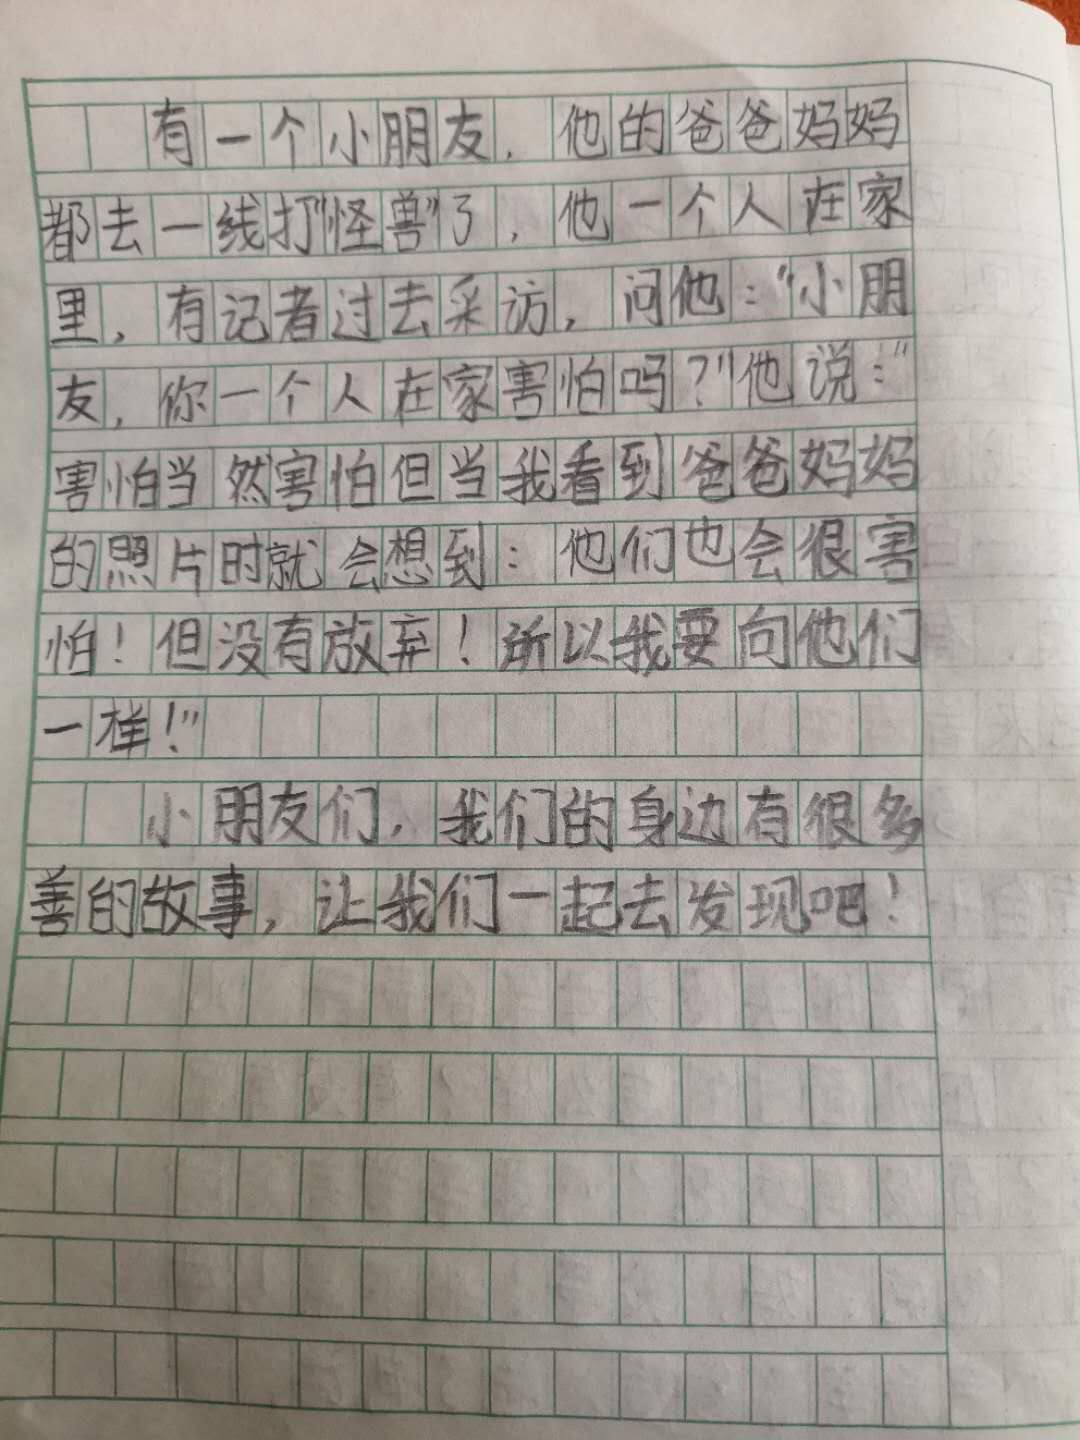 有一个小朋友，他的爸爸妈妈
都去一线打“怪兽”了，他一个人在家
里，有记者过去采访，问他：“小朋
友，你一个人在家害怕吗？”他说：“
害怕当然害怕但当我看到爸爸妈妈
的照片时就会想到：他们也会很害
怕！但没有放弃！所以我要向他们
一样！”
小朋友们，我们的身边有很多
善的故事，让我们一起去发现吧！